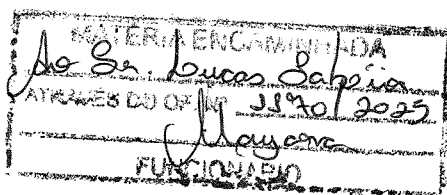 MATÉRIA ENCAMINHADA
Ao Sr. Lucas
ATRAVÉS DO OF. Nº 1170/2025
Mayara
FUNCIONÁRIO